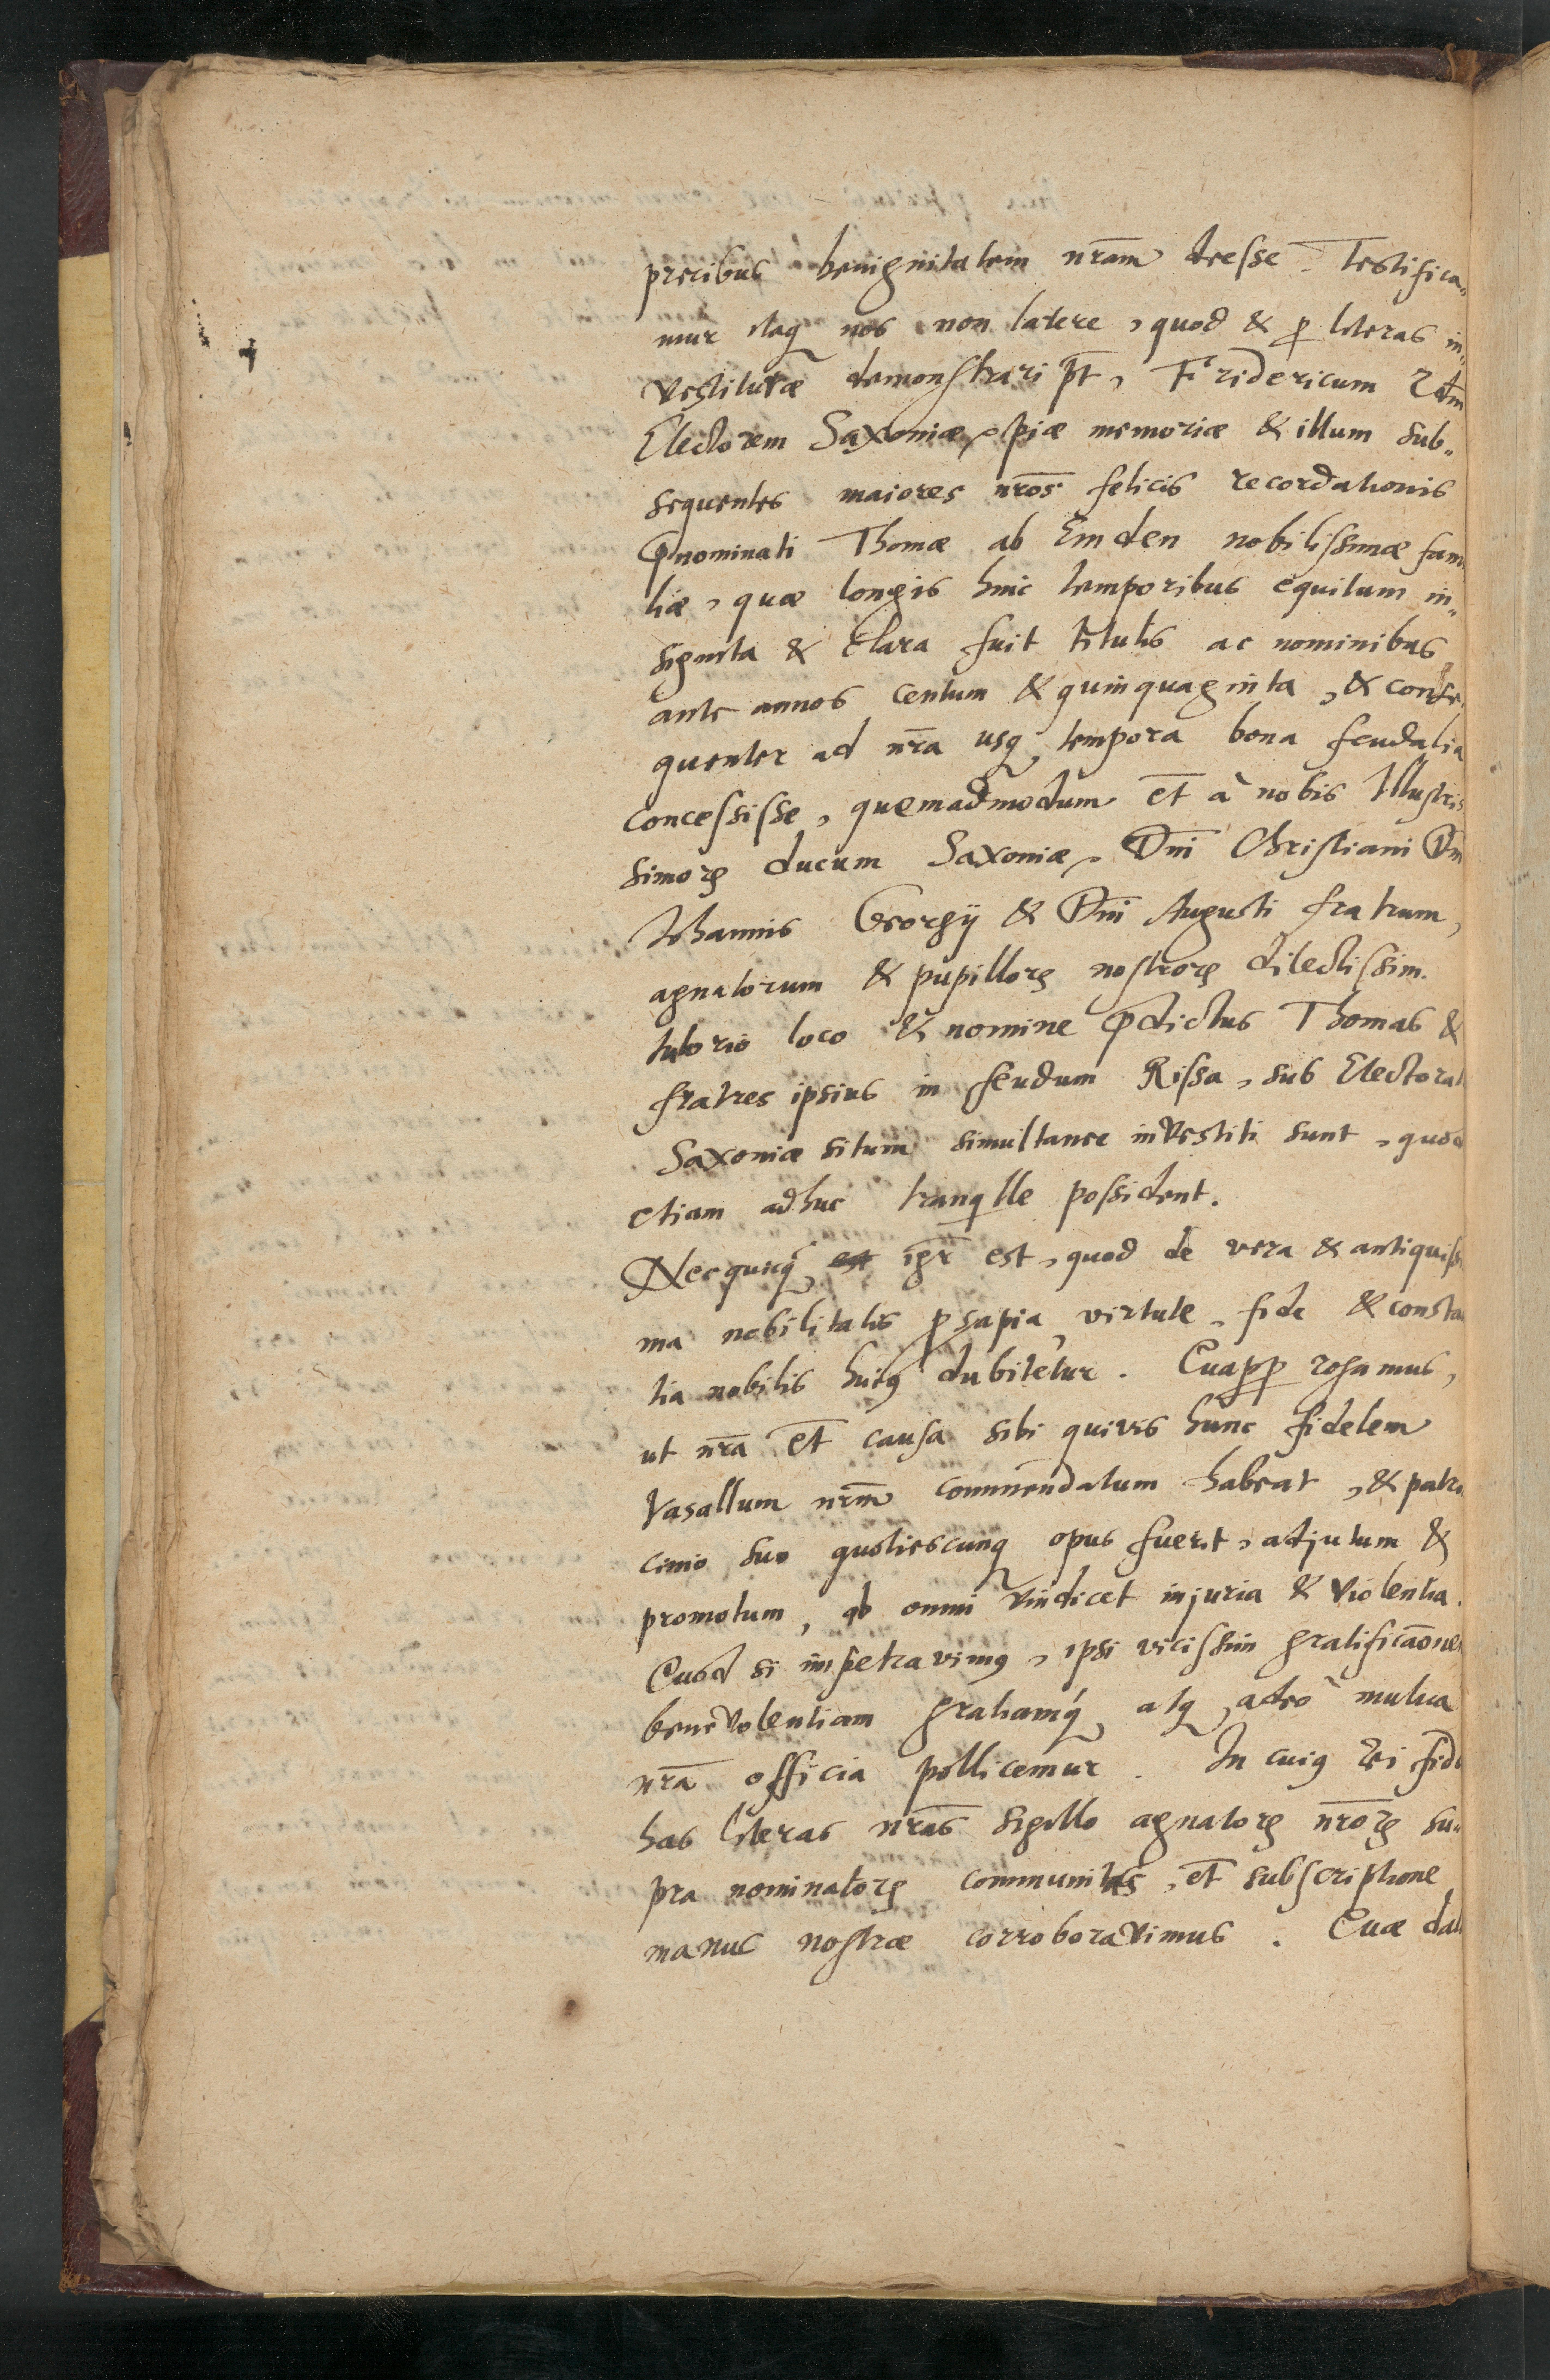 precibus benignitatem nr̄am deesse. Testifica„
mur itaq nos non latere, quod & ꝑ literas in„
vestituræ demonstrari pt̄, Fridericum 2dm
Electorem Saxoniæ, piæ memoriæ & illum sub„
sequentes maiores nr̄os felicis recordationis
p̄nominati Thomæ ab Emden nobilissimæ fam
liæ, quæ longis hinc temporibus equitum in„
signita & clara fuit titulis ac nominibus
ante annos centum & quinquaginta, & conse
quenter ad nr̄a usq tempora bona feudalia
concessisse, quemadmodum et̄ à nobis Illustris
simorꝝ ducum Saxoniæ, Dn̄i Christiani Dn̄
Johannis Georgij & Dn̄i Augusti fratrum,
agnatorum & pupillorꝝ nostrorꝝ dilectissim.
tutorio loco & nomine p̄dictus Thomas &
fratres ipsius in feudum Rissa, sub Electorat
Saxoniæ situm simultanee investiti sunt, quod
etiam adhuc tranqille possident.
Nec qucq igr̄ est, quod de vera & antiquiss
ma nobilitatis ꝓsapia, virtute, fide & consta
tia nobilis huiꝰ dubitetur. Quaꝓꝑ rogamus,
ut nr̄a et̄ causa sibi quivis hunc fidelem
Vasallum nr̄m commendatum habeat, & patro
cinio suo quotiescunq opus fuerit, adjutum &
promotum, ab omni vindicet injuria & violentia.
Quod si impetravimꝰ, ipsi vicissim gratificaōnem
benevolentiam gratiamq, atq adeò mutua
nr̄a officia pollicemur. In cuiꝰ rei fide
has literas nr̄as sigillo agnatorꝝ nr̄orꝝ su„
pra nominatorꝝ communitas, et̄ subscriptione
manus nostræ corroboravimus. Quæ dat